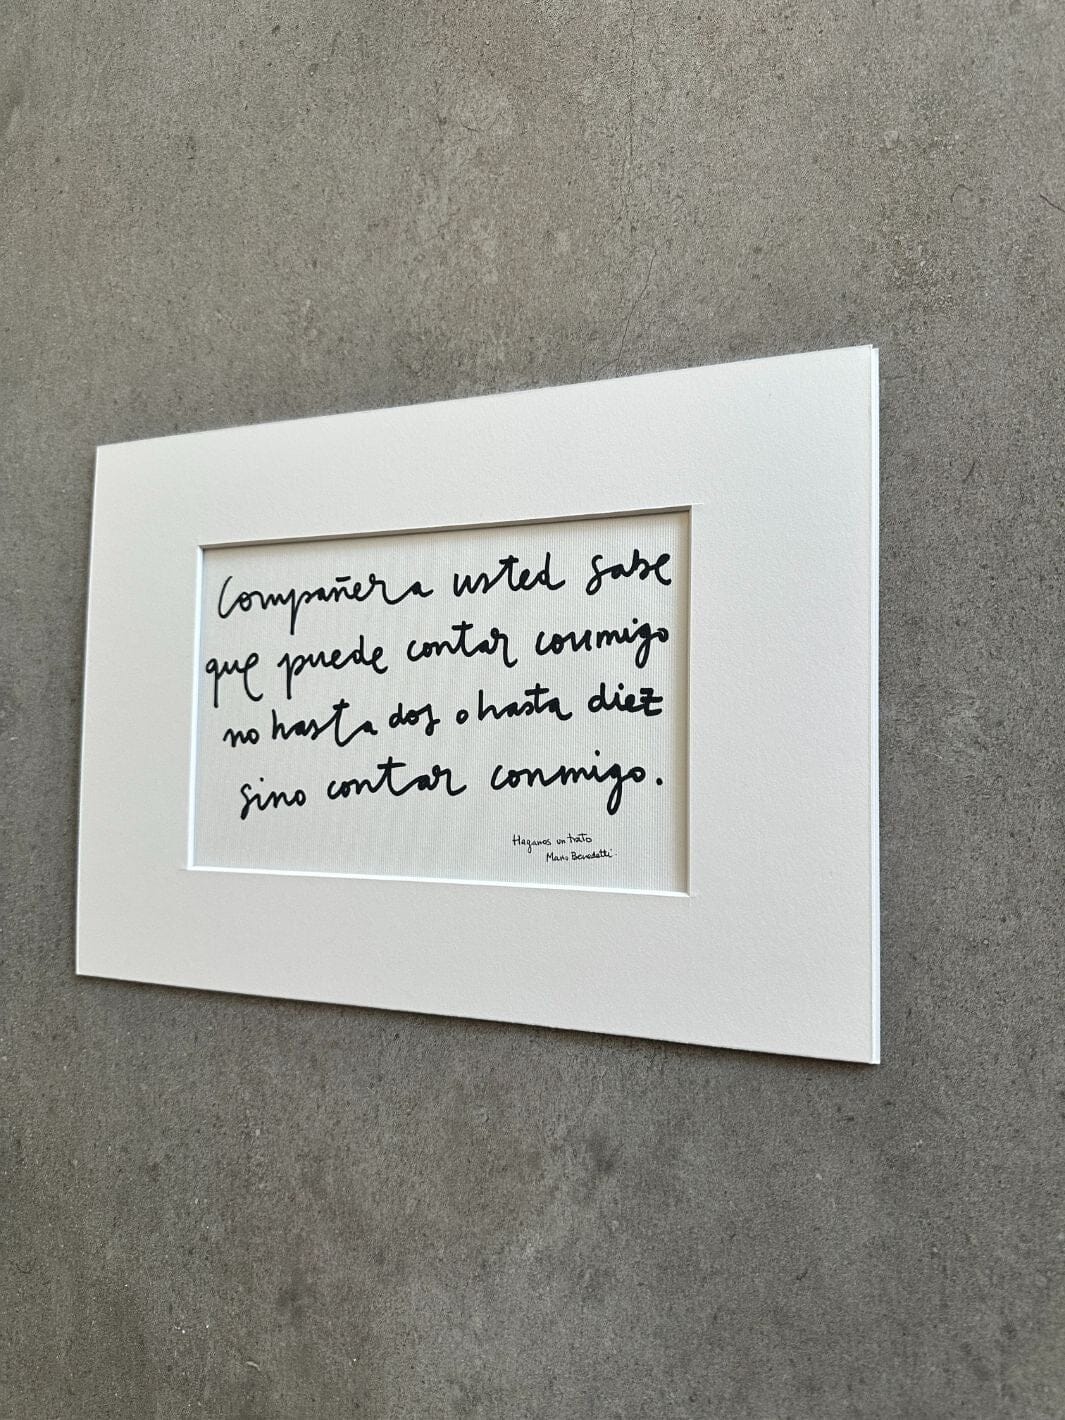 Compañera usted sabe
que puede contar conmigo
no hasta dos o hasta diez
sino contar conmigo.
Hagamos un trato
Mario Benedetti.